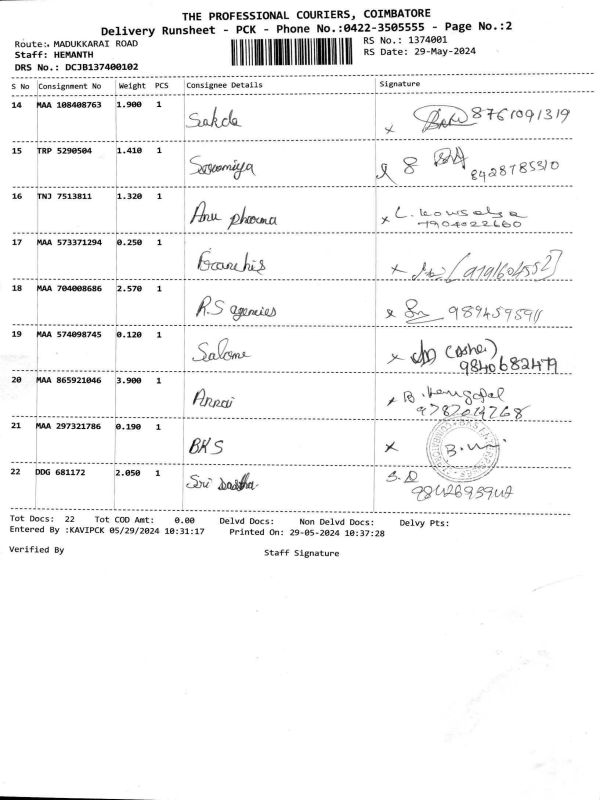 THE PROFESSIONAL COURIERS, COIMBATORE
Delivery Runsheet - PCK - Phone No.:0422-3505555 - Page No.:2
Route: MADUKKARAI ROAD RS No.: 1374001
Staff: HEMANTH RS Date: 29-May-2024
DRS No.: DCJB137400102
S No Consignment No Weight PCS Consignee Details Signature
14 MAA 108408763 1.900 1
x 8761091319
15 TRP 5290504 1.410 1
8428785310
16 TNJ 7513811 1.320 1
Anu pharma x L.
7904022660
17 MAA 573371294 0.250 1
x
18 MAA 704008686 2.570 1
R.S agencies x 9894595911
19 MAA 574098745 0.120 1
Salome x (Asha)
9840682479
20 MAA 865921046 3.900 1
Annai x B.
21 MAA 297321786 0.190 1
BKS x
22 DDG 681172 2.050 1
Sri S.D
Tot Docs: 22 Tot COD Amt: 0.00 Delvd Docs: Non Delvd Docs: Delvy Pts:
Entered By :KAVIPCK 05/29/2024 10:31:17 Printed On: 29-05-2024 10:37:28
Verified By Staff Signature